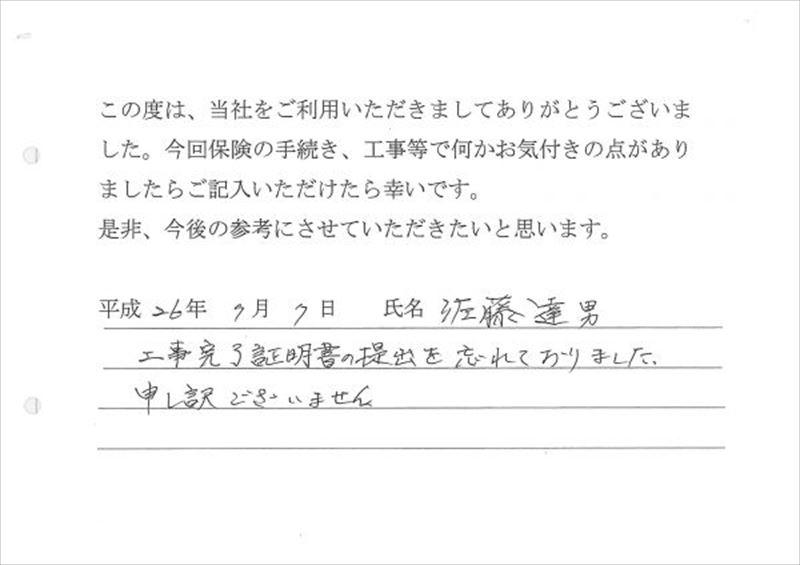 この度は、当社をご利用いただきましてありがとうございま
した。今回保険の手続き、工事等で何かお気付きの点があり
ましたらご記入いただけたら幸いです。
是非、今後の参考にさせていただきたいと思います。
平成26年 7月 7日 氏名 佐藤達男
工事完了証明書の提出を忘れておりました、
申し訳ございません